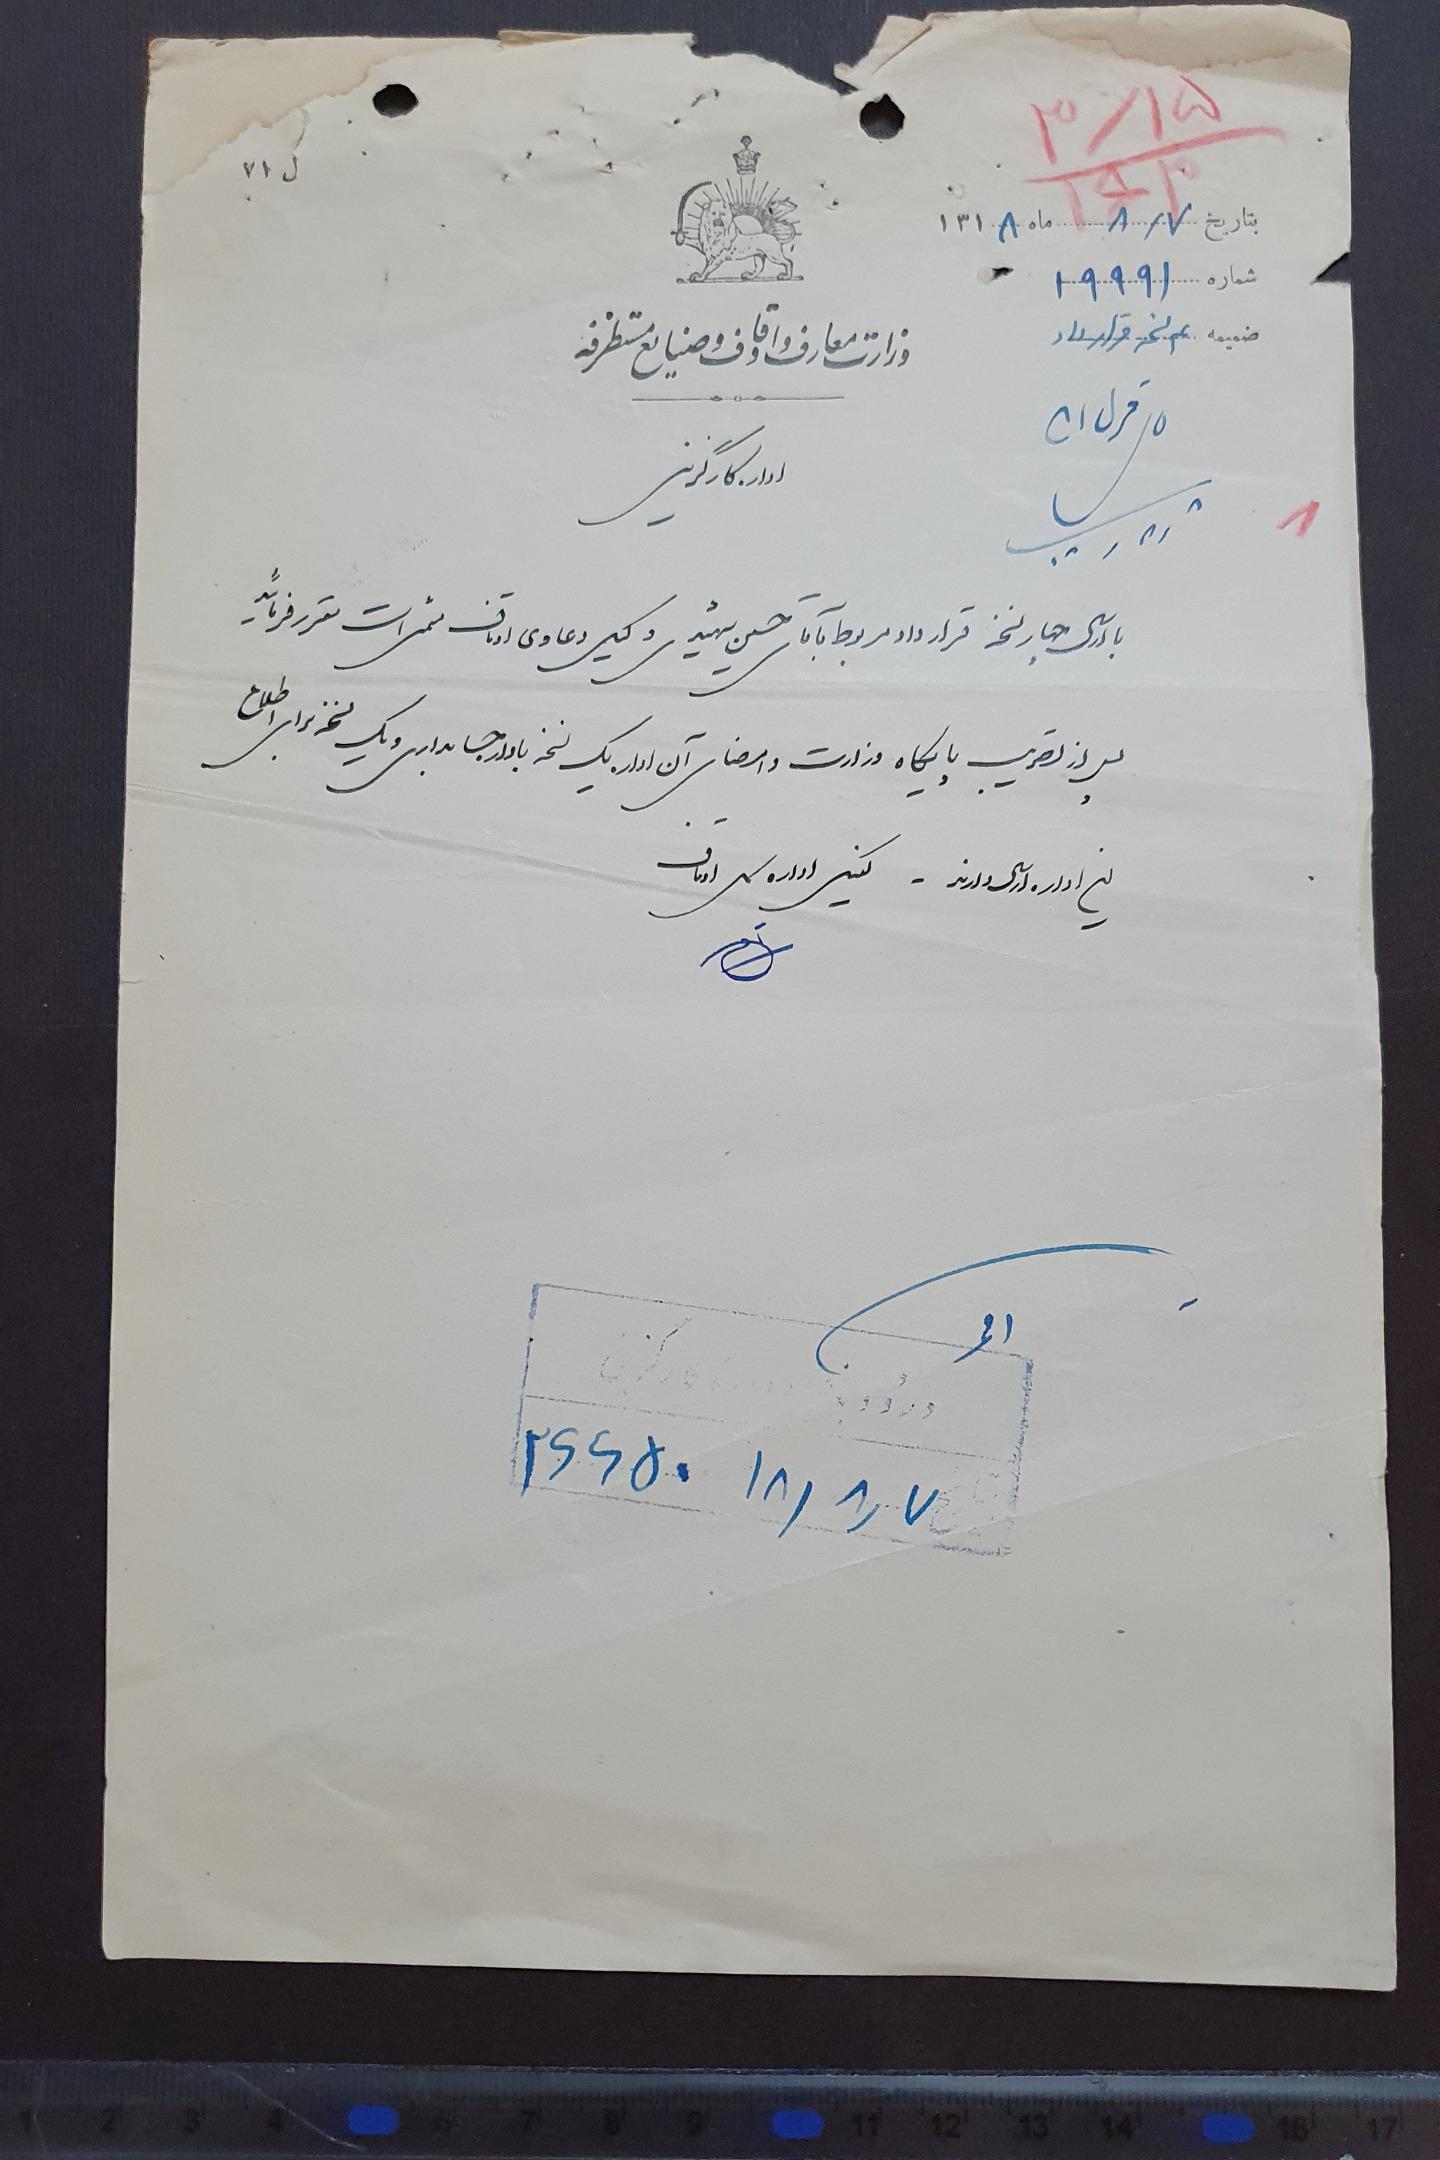 ۳/۱۵
ل ۷۱
بتاریخ ۸/۷ ماه ۱۳۱۸
شماره ۱۹۹۹۱
ضمیمه ۴ نسخه قرارداد
وزارت معارف و اوقاف و صنایع مستظرفه
اداره کارگزینی
۸
با ارسال چهار نسخه قرارداد مربوط بآقای حسین شهیدی وکیل دعاوی اوقاف متمنی است مقرر فرمائید
پس از تصویب پایگاه وزارت و امضای آن اداره یک نسخه باداره حسابداری و یک نسخه برای اطلاع
این اداره ارسال دارند - کفیل اداره کل اوقاف
ورود به کارگزینی
۲۶۶۵۰ ۱۸/۸/۷